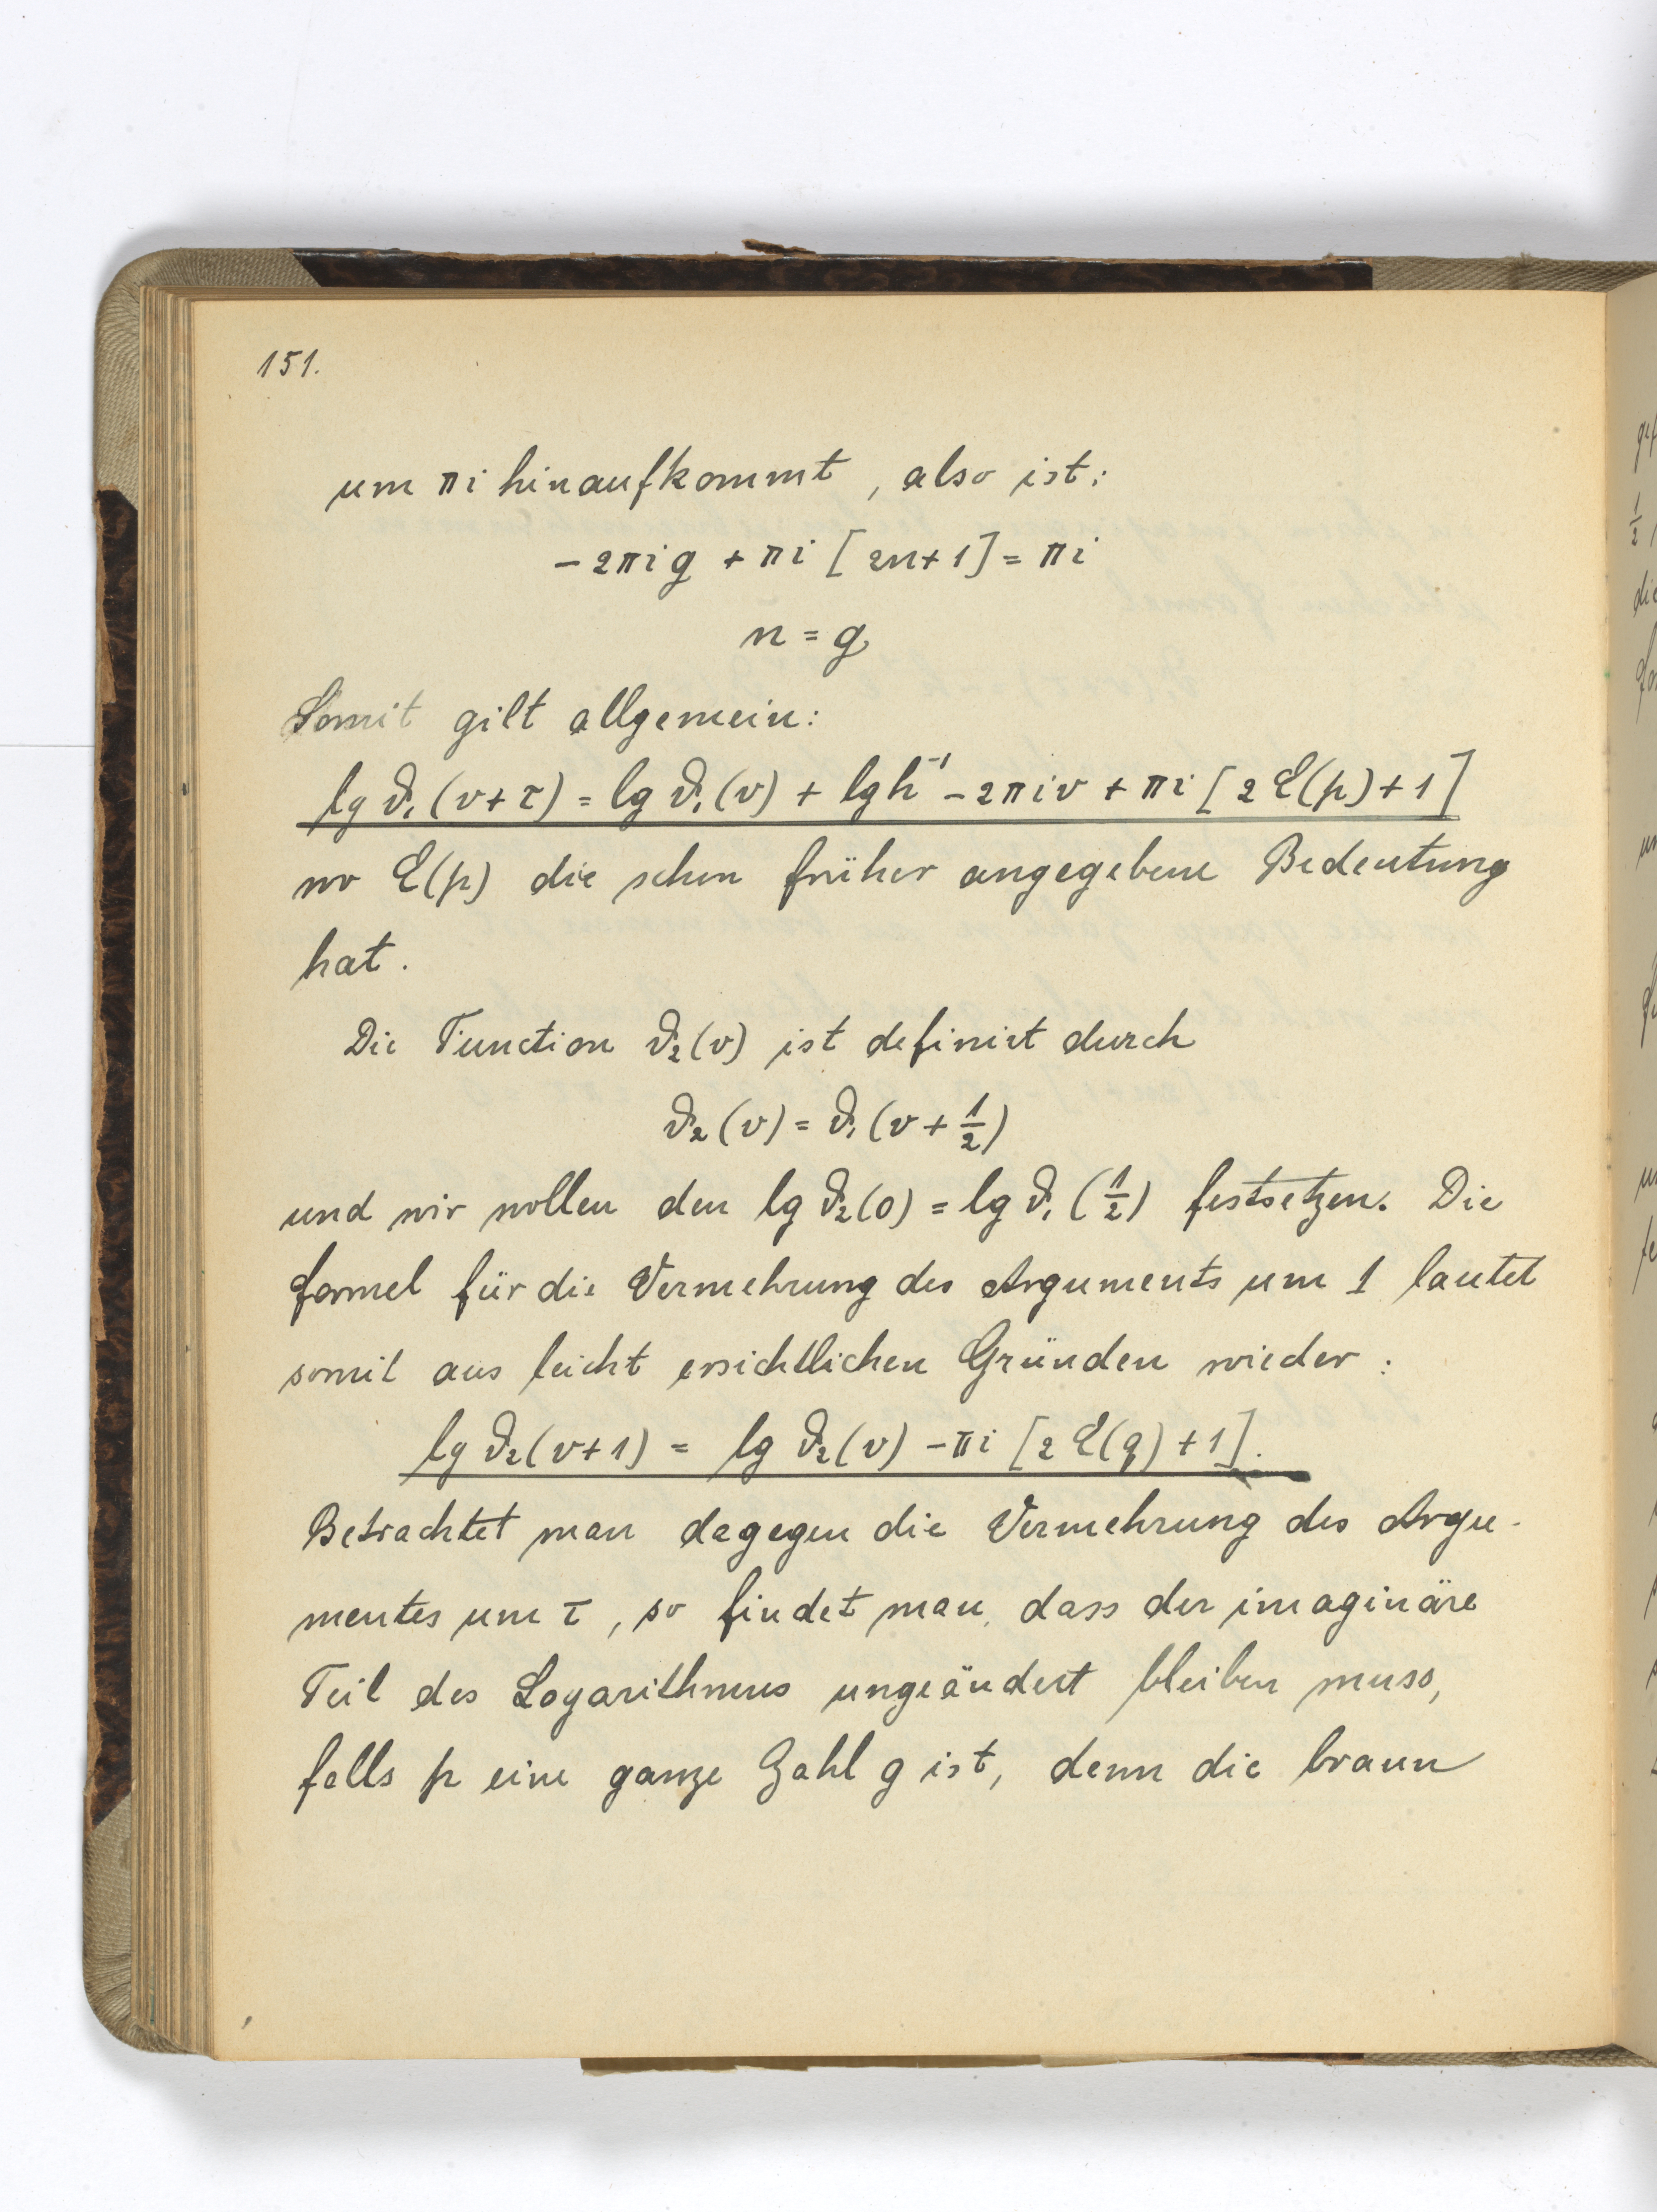 151.
um πi hinaufkommt, also ist:
- 2πig + πi [2n+1] = πi
n = g
Somit gilt allgemein:
lg ϑ₁(v+τ) = lg ϑ₁(v) + lg h⁻¹ - 2πiv + πi [2E(p)+1]
wo E(p) die schon früher angegebene Bedeutung
hat.
Die Function ϑ₂(v) ist definirt durch
ϑ₂(v) = ϑ₁(v + ½)
und wir wollen den lg ϑ₂(0) = lg ϑ₁(½) festsetzen. Die
Formel für die Vermehrung des Arguments um 1 lautet
somit aus leicht ersichtlichen Gründen wieder:
lg ϑ₂(v+1) = lg ϑ₂(v) - πi [2E(q)+1].
Betrachtet man dagegen die Vermehrung des Argu-
mentes um τ, so findet man, dass der imaginäre
Teil des Logarithmus ungeändert bleiben muss,
falls p eine ganze Zahl g ist, denn die braun